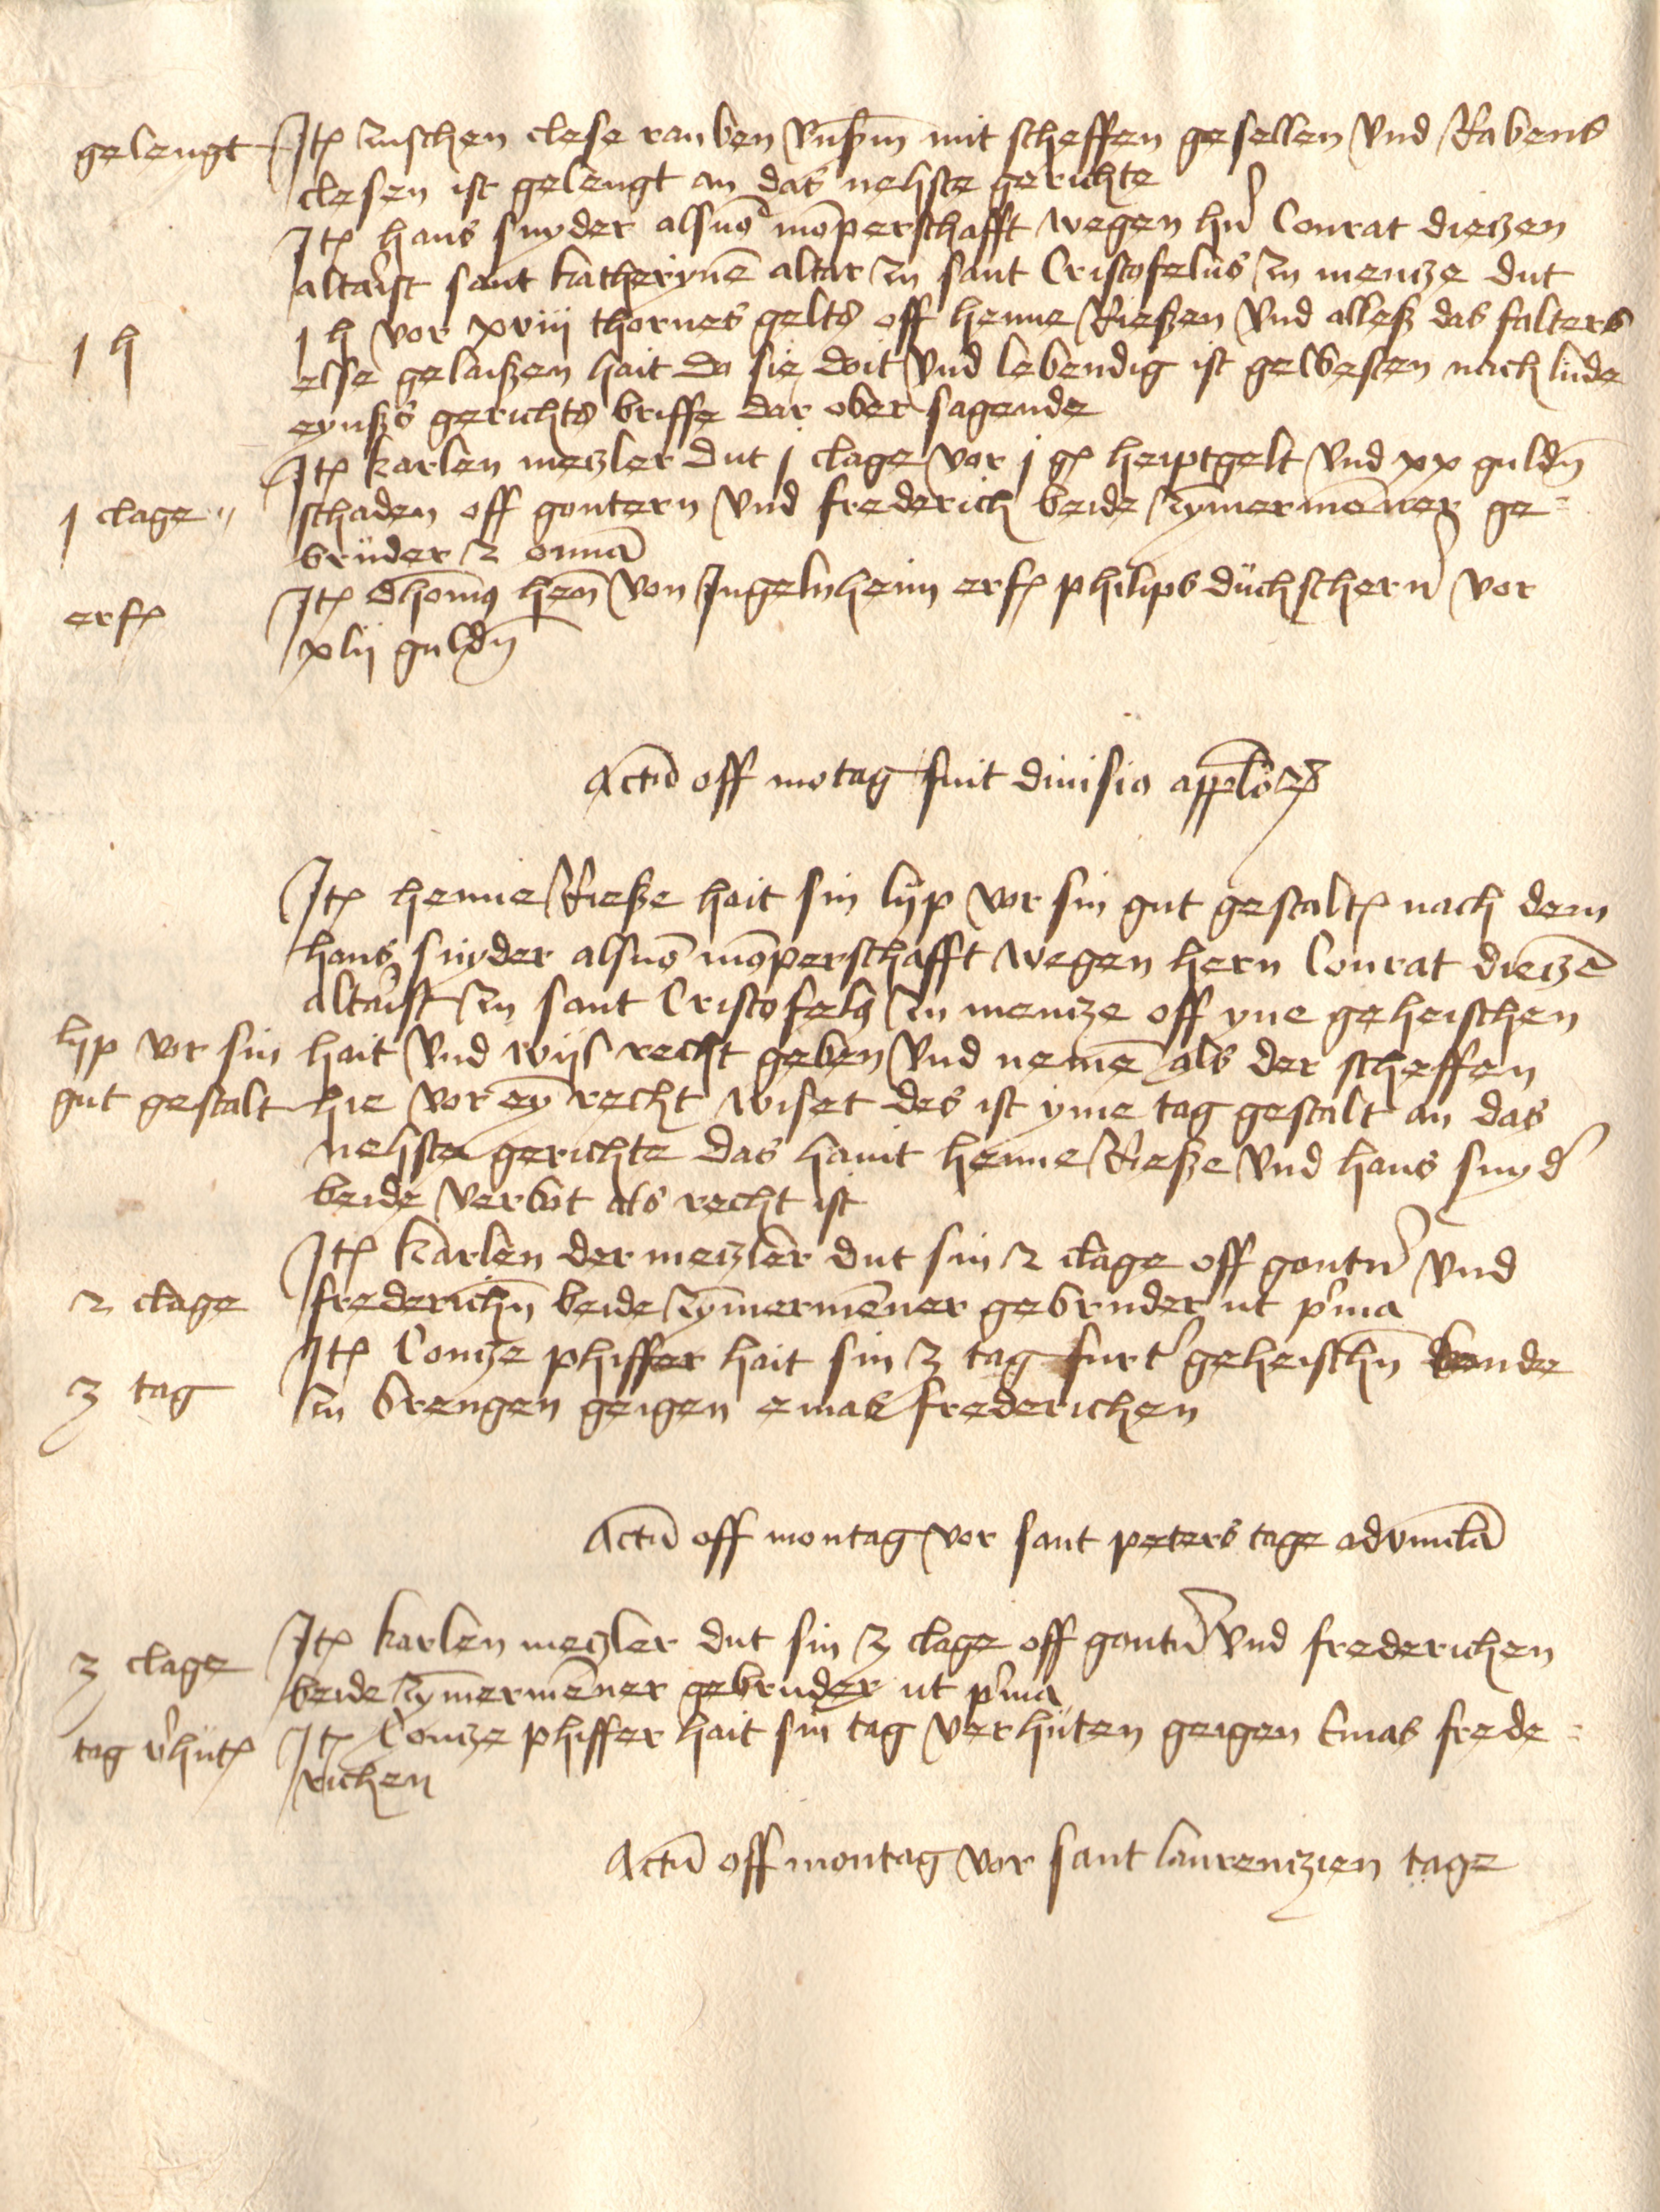 gelengt Itē zuschen clese rauben vnßm mit scheffen gesellen vnd Rabens
clesen ist gelengt an das nehste gerichte
Itē hans snyder als nō mōperschafft wegen hn̄ Conrat dietzen
altarist sant katherynē altar zu sant Cristofelus zu mentze dut
1 h 1 h vor xviij thornes gelts off henne Rießen vnd alleß das falters
else gelaißen hait da sie doit vnd lebendig ist gewesten nach lude
eynßs gerichts briffe dar ober sagende
Itē karlen metzler dut j clage vor j gß heiptgelt vnd xx guldn̄
1 clage schaden off gontern vnd frederich beide zȳmermēner ge=
bruder z omīa
erfß Itē dhomꝰ hen̄ von Ingelnheim erfß philips duchschern̄ vor
xlij guldn̄
Actū off motag fuit diuisio appl̄oꝝ
Itē henne Rieße hait sin lijp vor sin gut gestaltē nach dem
hans snyder als nō mōperschafft wegen hern Conrat dietzē
altarist zu sant Cristofelꝰ zu mentze off yne geheischen
lyp vor sin hait vnd wijl recht geben vnd nemē als der scheffen
gut gestalt hie vor eȳ recht wiset des ist yme tag gestalt an das
nehste gerichte das haint henne Rieße vnd hans snyd̄
beide verbot als recht ist
Itē karlen der metzler dut sin 2 clage off gontn̄ vnd
2 clage frederichn̄ beide zȳmermēner gebruder ut p̄ma
Itē Contze phiffer hait sin 3 tag furt̄ geheischn̄ konde
3 tag zu brengen geigen emas frederichen
Actū off montag vor sant peters tage advincl̄a
Itē karlen metzler dut sin 3 clage off gontn̄ vnd frederichen
3 clage beide zȳmermēner gebruder ut p̄ma
tag v̄hutē Itē Contze phiffer hait sin tag verhuten geigen Emas frede=
richen
Actū off montag vor sant laurentzien tage